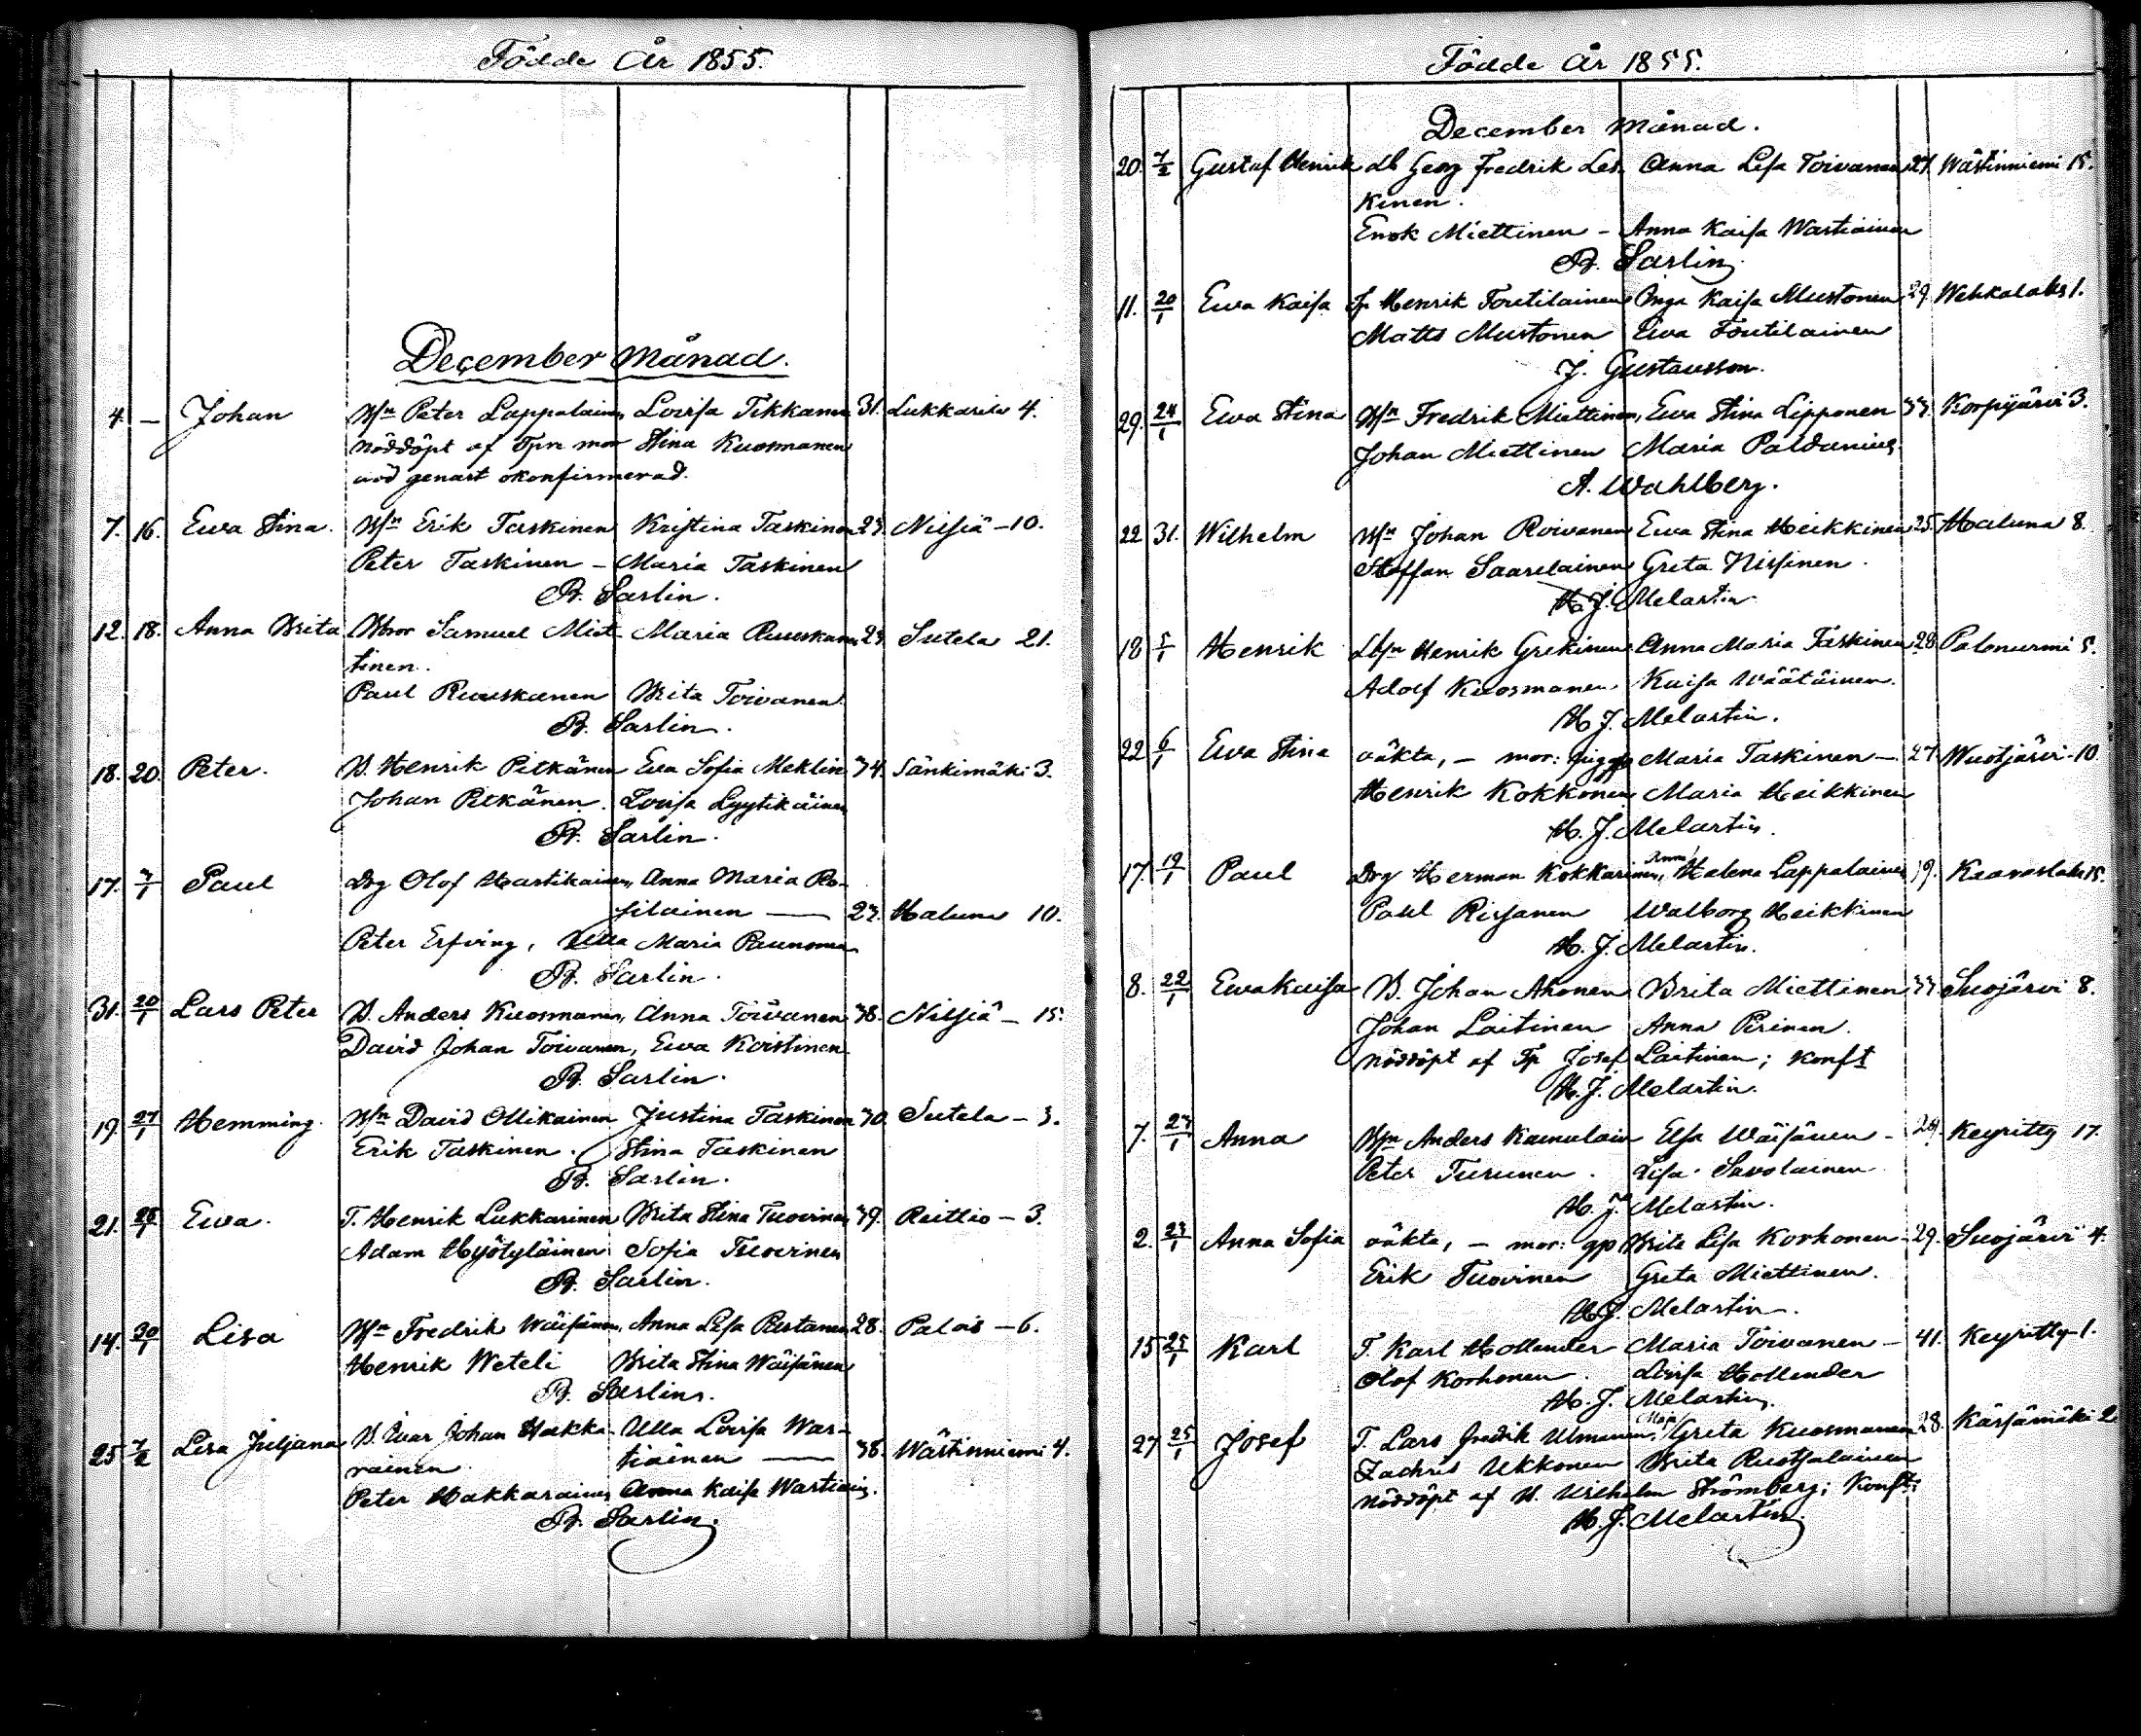 Födde År 1855.
December Månad.
4. — Johan Bfn Peter Lappalainen Lovisa Tikkanen 31. Lukkarila 4.
Nöddöpt af Tpn mor Stina Kuosmanen
död genast okonfirmerad.
7. 16. Ewa Stina. Bfn Erik Taskinen Kristina Taskinen 23. Nilsiä - 10.
Peter Taskinen - Maria Taskinen
B. Sarlin.
12. 18. Anna Brita Bbror Samuel Miet- Maria Ruuskanen 23. Sutela 21.
tinen.
Paul Ruuskanen Brita Toivanen.
B. Sarlin.
18. 20. Peter. B. Henrik Pitkänen Eva Sofia Meklin 34. Sänkimäki 3.
Johan Pitkänen. Lovisa Lyytikäinen
B. Sarlin.
17. 7/1 Paul Drg Olof Hartikainen, Anna Maria Ro-
silainen — 23. Haluna 10.
Peter Erfving, Ulla Maria Paunonen
B. Sarlin.
31. 20/1 Lars Peter B. Anders Kuosmanen, Anna Toivanen 38. Nilsiä - 15.
David Johan Toivanen, Ewa Koistinen
B. Sarlin.
19. 27/1 Hemming. Bfn David Ollikainen Justina Taskinen 30. Sutela - 3.
Erik Taskinen. Stina Taskinen
B. Sarlin.
21. 28/1 Ewa. T. Henrik Lukkarinen Brita Stina Tuovinen 39. Reittio - 3.
Adam Hyötyläinen Sofia Tuovinen
B. Sarlin.
14. 30/1 Lisa Bfn Fredrik Wäisänen, Anna Lisa Rustanen 28. Palois - 6.
Henrik Weteli Brita Stina Wäisänen
B. Sarlin.
25. 7/2 Lisa Juljana B. Ivar Johan Hakka- Ulla Lovisa War-
rainen tiäinen — 38. Wästinniemi 4.
Peter Hakkarainen Anna Kaisa Wartiain.
B. Sarlin.
Födde År 1855.
December Månad.
20. 7/2 Gustaf Henrik Lb Georg Fredrik Les- Anna Lisa Toivanen 27. Wästinniemi 15.
kinen.
Enok Miettinen - Anna Kaisa Wartiainen
B. Sarlin.
11. 20/1 Ewa Kaisa Ip Henrik Toutilainen Inga Kaisa Mustonen 29. Wehkalaks 1.
Matts Mustonen Ewa Toutilainen
J. Gustavsson.
29. 24/1 Ewa Stina Bfn Fredrik Miettinen, Ewa Stina Lipponen 33. Korpijärvi 3.
Johan Miettinen Maria Paldanius
A. Wahlberg.
22 31. Wilhelm Bfn Johan Roivanen Ewa Stina Heikkinen 25. Haluna 8.
Staffan Saarelainen Greta Nissinen.
H. J. Melartin
18 5/1 Henrik Lbfn Henrik Grekinen Anna Maria Taskinen 28. Palonurmi 5.
Adolf Kuosmanen. Kaisa Wäätäinen.
H. J. Melartin.
22 6/1 Ewa Stina oäkta, - mor: piggn Maria Taskinen - 27. Wuotjärvi - 10.
Henrik Kokkonen Maria Heikkinen
H. J. Melartin.
17. 19/1 Paul Drg Herman Kokkarinen, Anna Helena Lappalainen 19. Kaavaslaks 15.
Paul Rissanen Walborg Heikkinen
H. J. Melartin.
8. 22/1 Ewa Kaisa B. Johan Ahonen Brita Miettinen 33. Suojärvi 8.
Johan Laitinen Anna Pirinen.
nöddöpt af Tp Josef Laitinen; konft
H. J. Melartin.
7. 23/1 Anna Bfn Anders Kainulain Elsa Wäisänen - 29. Keyritty 17.
Peter Turunen. Lisa Savolainen
H. J. Melartin.
2. 23/1 Anna Sofia oäkta, - mor: gp Brita Lisa Korhonen - 29. Suojärvi 4.
Erik Tuovinen Greta Miettinen.
H. J. Melartin.
15 25/1 Karl T. Karl Hollender Maria Toivanen - 41. Keyritty - 1.
Olof Korhonen. Lovisa Hollender
H. J. Melartin.
27 25/1 Josef T. Lars Fredrik Ulmanen, Maja Greta Kuosmanen 28. Kärsämäki 2
Zachris Ukkonen Brita Ruotsalainen
nöddöpt af U. Wilhelm Strömberg; Konft;
H. J. Melartin